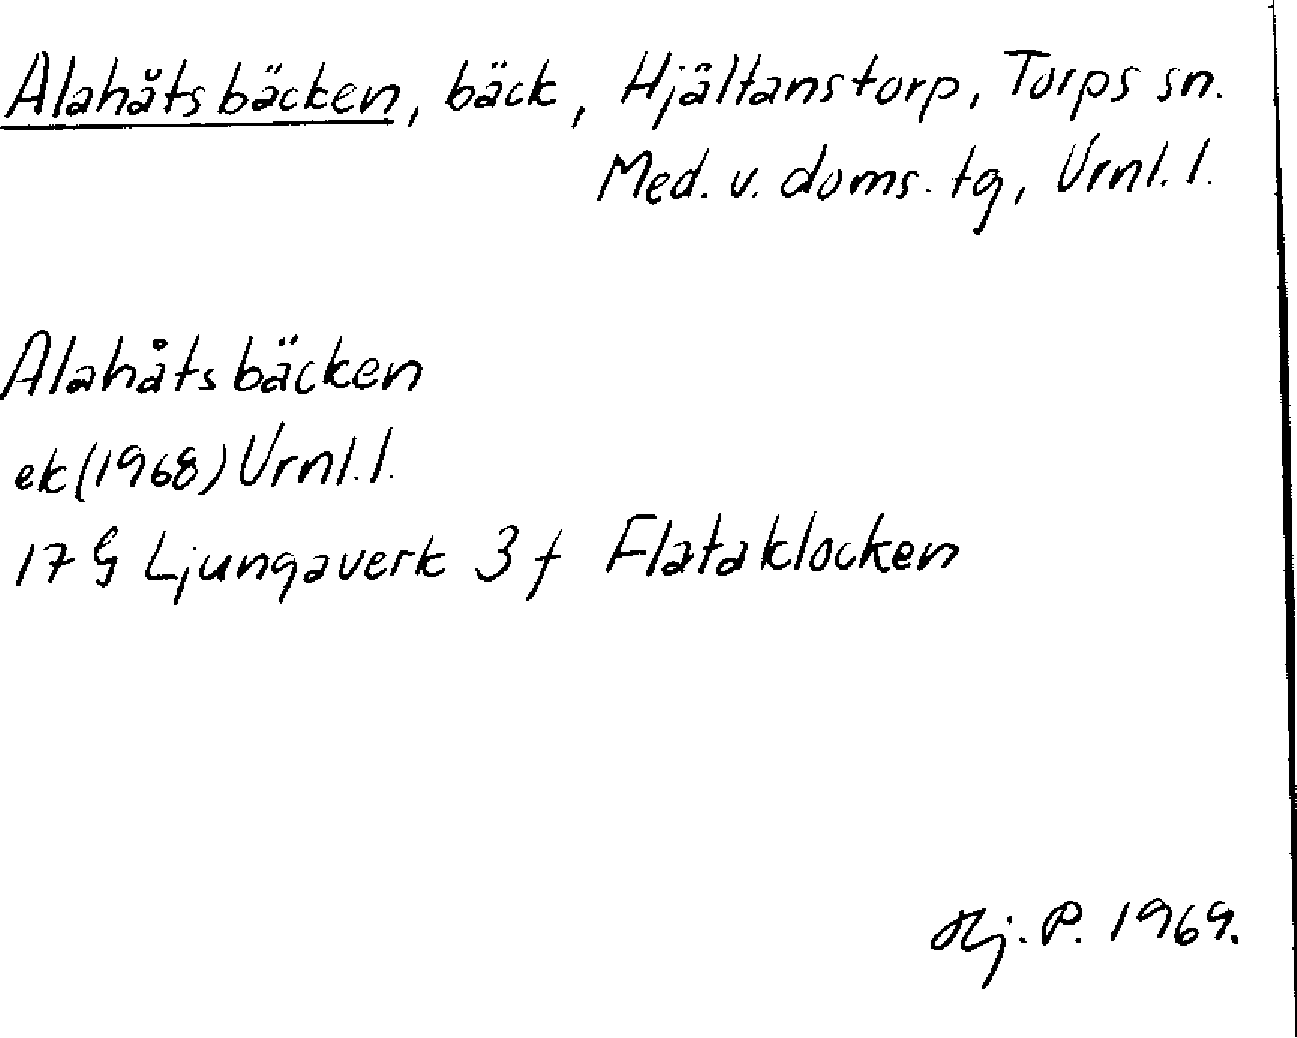 Alahåtsbäcken, bäck, Hjältanstorp, Torps sn.
Med. v. doms. tg, Vrnl. l.
Alahåtsbäcken
ek (1968) Vrnl. l.
17 G Ljungaverk 3 f Flataklocken
Hj. P. 1969.